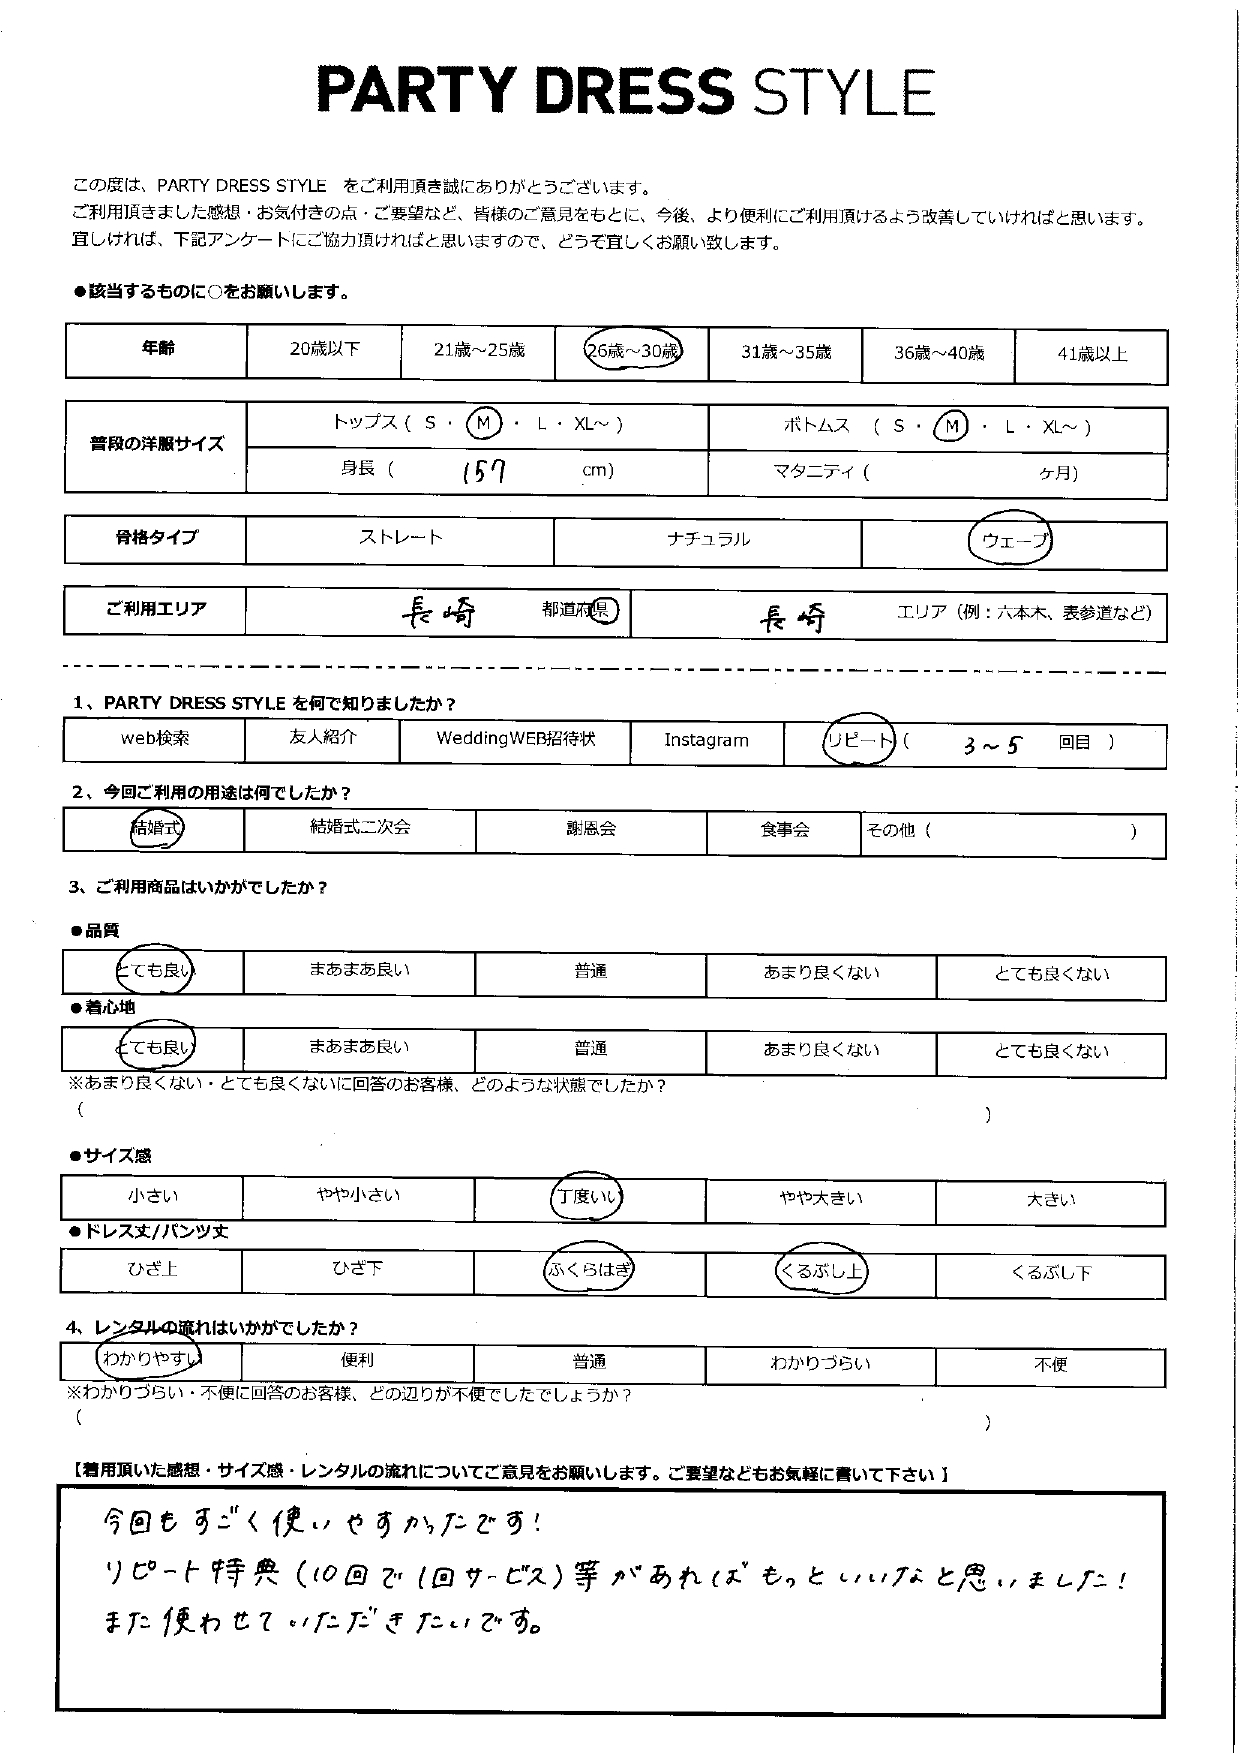 PARTY DRESS STYLE
この度は、PARTY DRESS STYLE をご利用頂き誠にありがとうございます。
ご利用頂きました感想・お気付きの点・ご要望など、皆様のご意見をもとに、今後、より便利にご利用頂けるよう改善していければと思います。
宜しければ、下記アンケートにご協力頂ければと思いますので、どうぞ宜しくお願い致します。
●該当するものに○をお願いします。
年齢 20歳以下 21歳～25歳 26歳～30歳 31歳～35歳 36歳～40歳 41歳以上
普段の洋服サイズ
トップス ( S ・ M ・ L ・ XL～ ) ボトムス ( S ・ M ・ L ・ XL～ )
身長 ( 157 cm) マタニティ ( ヶ月)
骨格タイプ ストレート ナチュラル ウェーブ
ご利用エリア 長崎 都道府県 長崎 エリア（例：六本木、表参道など）
1、PARTY DRESS STYLE を何で知りましたか？
web検索 友人紹介 WeddingWEB招待状 Instagram リピート ( 3～5 回目 )
2、今回ご利用の用途は何でしたか？
結婚式 結婚式二次会 謝恩会 食事会 その他 ( )
3、ご利用商品はいかがでしたか？
●品質
とても良い まあまあ良い 普通 あまり良くない とても良くない
●着心地
とても良い まあまあ良い 普通 あまり良くない とても良くない
※あまり良くない・とても良くないに回答のお客様、どのような状態でしたか？
( )
●サイズ感
小さい やや小さい 丁度いい やや大きい 大きい
●ドレス丈/パンツ丈
ひざ上 ひざ下 ふくらはぎ くるぶし上 くるぶし下
4、レンタルの流れはいかがでしたか？
わかりやすい 便利 普通 わかりづらい 不便
※わかりづらい・不便に回答のお客様、どの辺りが不便でしたでしょうか？
( )
【着用頂いた感想・サイズ感・レンタルの流れについてご意見をお願いします。ご要望などもお気軽に書いて下さい】
今回もすごく使いやすかったです！
リピート特典(10回で1回サービス)等があればもっといいなと思いました！
また使わせていただきたいです。